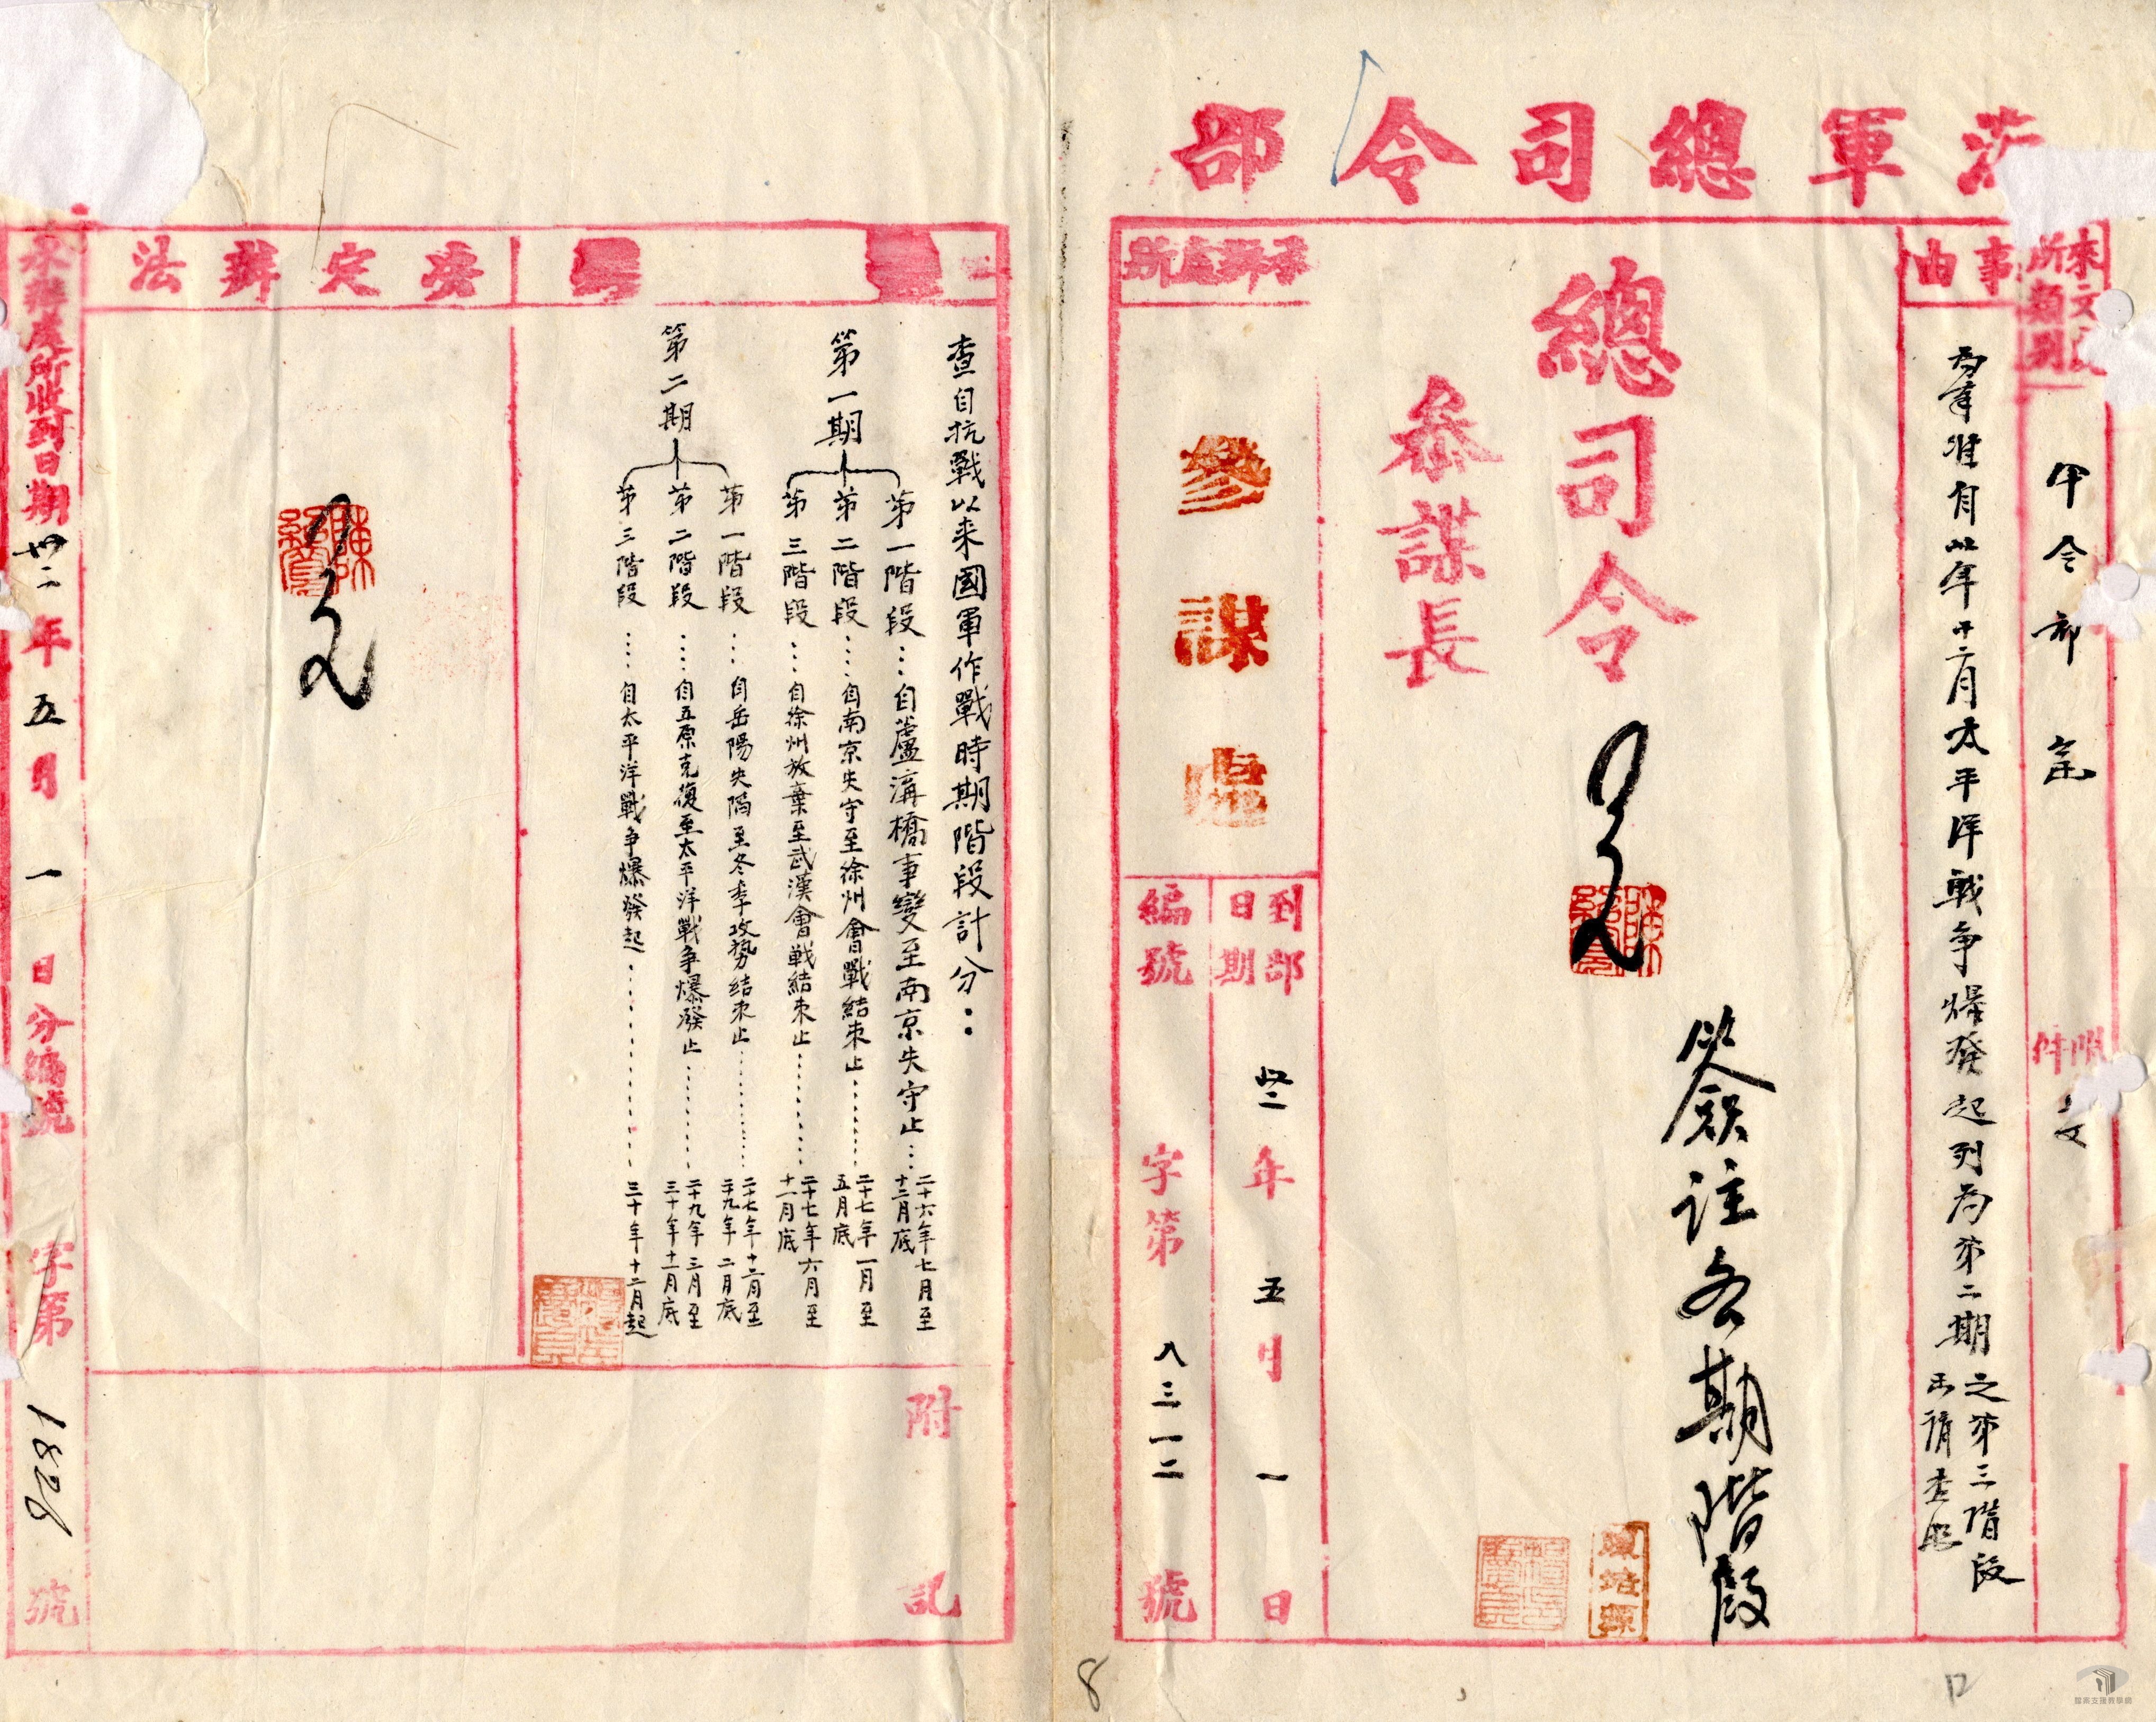 海軍總司令部
來文
所類別
軍令部
附件
事由
為奉准自卅年十二月太平洋戰爭爆發起列為第二期之第三階段
總司令
參謀長
簽註各期階段
承辦處所
參謀處
到部日期
卅二年五月一日
編號
字第八三一二號
查自抗戰以来國軍作戰時期階段計分：
第一期
第一階段…自蘆溝橋事變至南京失守止…二十六年七月至十二月底
第二階段…自南京失守至徐州會戰結束止…二十七年一月至五月底
第三階段…自徐州放棄至武漢會戰結束止…二十七年六月至十一月底
第二期
第一階段…自岳陽失陷至冬季攻勢结束止…二十七年十二月至二十九年二月底
第二階段…自五原克復至太平洋戰争爆發止…二十九年三月至三十年十一月底
第三階段…自太平洋戰争爆發起…三十年十二月起
決定辦法
附記
承辦處所收到日期卅二年五月一日分編號字第1826號
8
檔案支援教學網